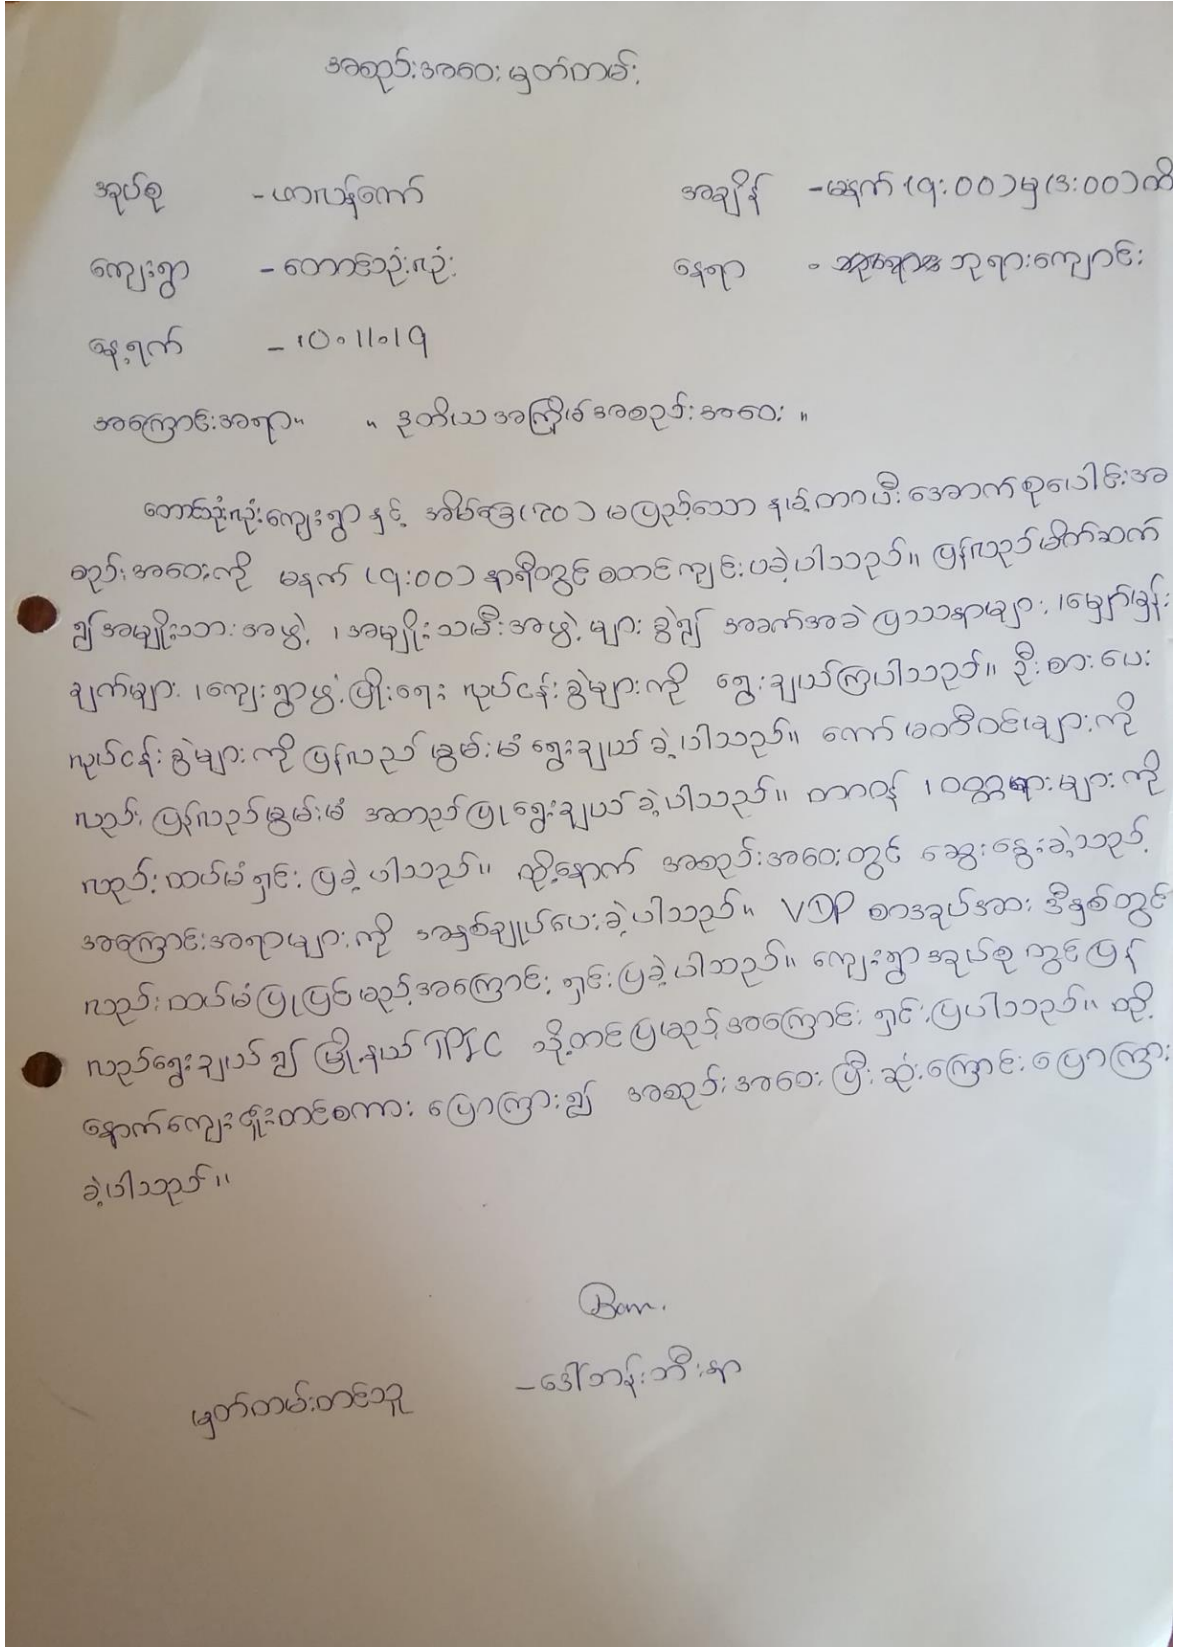 အစည်းအဝေး မှတ်တမ်း
အုပ်စု - ဟာလန်ကော် အချိန် - မနက် (၇:၀၀) မှ (၁:၀၀) ထိ
ကျေးရွာ - တောင်ဦးလုံး နေရာ - ဘုရားကျောင်း
နေ့ရက် - 10.11.19
အကြောင်းအရာ။ " ဒုတိယအကြိမ်အစည်းအဝေး "
တောင်ဦးလုံးကျေးရွာ နှင့် အိမ်ခြေ (၅၀) မပြည့်သော နမ့်တာပီး အောက် စုပေါင်းအ
စည်းအဝေးကို မနက် (၇:၀၀) နာရီတွင် စတင် ကျင်းပခဲ့ပါသည်။ ပြန်လည်မိတ်ဆက်
၍ အမျိုးသားအဖွဲ့ ၊ အမျိုးသမီးအဖွဲ့ များ ခွဲ၍ အခက်အခဲ ပြဿနာများ ၊ မျှော်မှန်း
ချက်များ ၊ ကျေးရွာဖွံ့ဖြိုးရေး လုပ်ငန်းခွဲများကို ရွေးချယ်ကြပါသည်။ ဦးစားပေး
လုပ်ငန်းခွဲများကို ပြန်လည် ခြွမ်းမံ ရွေးချယ်ခဲ့ပါသည်။ ကော်မတီဝင်များကို
လည်း ပြန်လည်ခြွမ်းမံ အတည်ပြု ရွေးချယ်ခဲ့ပါသည်။ တာဝန် ၊ ဝတ္တရားများကို
လည်း ထပ်မံ ရှင်းပြခဲ့ပါသည်။ ထို့နောက် အစည်းအဝေးတွင် ဆွေးနွေးခဲ့သည့်
အကြောင်းအရာများကို အနှစ်ချုပ်ပေးခဲ့ပါသည်။ VDP စာအုပ်အား ဒီနှစ်တွင်
လည်း ထပ်မံပြုပြင်မည့်အကြောင်း ရှင်းပြခဲ့ပါသည်။ ကျေးရွာအုပ်စု တွင်ပြန်
လည်ရွေးချယ်၍ မြို့နယ် TPIC သို့တင်ပြမည့်အကြောင်း ရှင်းပြပါသည်။ ထို့
နောက်ကျေးဇူးတင်စကား ပြောကြား၍ အစည်းအဝေး ပြီးဆုံးကြောင်း ပြောကြား
ခဲ့ပါသည်။
မှတ်တမ်းတင်သူ - ဒေါ်ဘန်းဘီးနာ